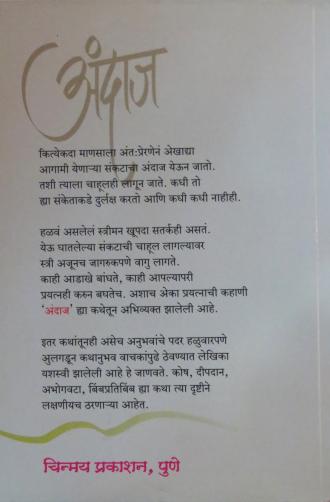 अंदाज
कित्येकदा माणसाला अंत:प्रेरणेनं अेखाद्या
आगामी येणाऱ्या संकटाचा अंदाज येऊन जातो.
तशी त्याला चाहूलही लागून जाते. कधी तो
ह्या संकेताकडे दुर्लक्ष करतो आणि कधी कधी नाहीही.
हळवं असलेलं स्त्रीमन खूपदा सतर्कही असतं.
येऊ घातलेल्या संकटाची चाहूल लागल्यावर
स्त्री अजूनच जागरुकपणे वागु लागते.
काही आडाखे बांधते, काही आपल्यापरी
प्रयत्नही करुन बघतेच. अशाच अेका प्रयत्नाची कहाणी
'अंदाज' ह्या कथेतून अभिव्यक्त झालेली आहे.
इतर कथांतूनही असेच अनुभवांचे पदर हळुवारपणे
अुलगडून कथानुभव वाचकांपुढे ठेवण्यात लेखिका
यशस्वी झालेली आहे हे जाणवते. कोष, दीपदान,
अभोगवटा, बिंबप्रतिबिंब ह्या कथा त्या दृष्टीने
लक्षणीयच ठरणाऱ्या आहेत.
चिन्मय प्रकाशन, पुणे